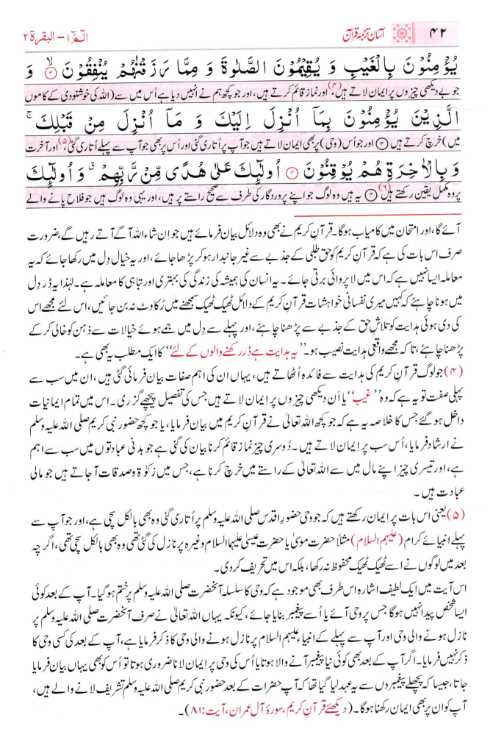 ۴۲ آسان ترجمۂ قرآن الٓمّٓ ۱ – البقرۃ ۲
يُؤْمِنُوْنَ بِالْغَيْبِ وَ يُقِيْمُوْنَ الصَّلٰوةَ وَ مِمَّا رَزَقْنٰهُمْ يُنْفِقُوْنَ ۙ﴿۳﴾ وَ
جو بے دیکھی چیزوں پر ایمان لاتے ہیں (۴) اور نماز قائم کرتے ہیں، اور جو کچھ ہم نے انہیں دیا ہے اُس میں سے (اللہ کی خوشنودی کے کاموں
الَّذِيْنَ يُؤْمِنُوْنَ بِمَاۤ اُنْزِلَ اِلَيْكَ وَ مَاۤ اُنْزِلَ مِنْ قَبْلِكَ ۚ
میں) خرچ کرتے ہیں ﴿۳﴾ اور جو اُس (وحی) پر بھی ایمان لاتے ہیں جو آپ پر اُتاری گئی اور اُس پر بھی جو آپ سے پہلے اُتاری گئی (۵) اور آخرت
وَ بِالْاٰخِرَةِ هُمْ يُوْقِنُوْنَ ؕ﴿۴﴾ اُولٰٓئِكَ عَلٰى هُدًى مِّنْ رَّبِّهِمْ ۗ وَ اُولٰٓئِكَ
پر وہ مکمل یقین رکھتے ہیں (۶) ﴿۴﴾ یہ ہیں وہ لوگ جو اپنے پروردگار کی طرف سے صحیح راستے پر ہیں، اور یہی وہ لوگ ہیں جو فلاح پانے والے
آئے گا، اور امتحان میں کامیاب ہوگا۔ قرآنِ کریم نے بھی وہ دلائل بیان فرمائے ہیں جو اِن شاء اللہ آگے آتے رہیں گے، ضرورت
صرف اس بات کی ہے کہ قرآنِ کریم کو حق طلبی کے جذبے سے غیر جانبدار ہو کر پڑھا جائے، اور یہ خیال دِل میں رکھا جائے کہ یہ
معاملہ ایسا نہیں ہے کہ اس میں لا پروائی برتی جائے۔ یہ انسان کی ہمیشہ کی زندگی کی بہتری اور تباہی کا معاملہ ہے۔ لہٰذا یہ ڈر دِل
میں ہونا چاہئے کہ کہیں میری نفسانی خواہشات قرآنِ کریم کے دلائل ٹھیک ٹھیک سمجھنے میں رُکاوٹ نہ بن جائیں، اس لئے مجھے اس
کی دی ہوئی ہدایت کو تلاشِ حق کے جذبے سے پڑھنا چاہئے، اور پہلے سے دِل میں جمے ہوئے خیالات سے ذہن کو خالی کر کے
پڑھنا چاہئے، تاکہ مجھے واقعی ہدایت نصیب ہو۔ ’’یہ ہدایت ہے ڈر رکھنے والوں کے لئے‘‘ کا ایک مطلب یہ بھی ہے۔
(۴) جو لوگ قرآنِ کریم کی ہدایت سے فائدہ اُٹھاتے ہیں، یہاں ان کی اہم صفات بیان فرمائی گئی ہیں، ان میں سب سے
پہلی صفت تو یہ ہے کہ وہ ’’غیب‘‘ یا اَن دیکھی چیزوں پر ایمان لاتے ہیں جس کی تفصیل پیچھے گزری۔ اس میں تمام ایمانیات
داخل ہو گئے جس کا خلاصہ یہ ہے کہ جو کچھ اللہ تعالیٰ نے قرآنِ کریم میں بیان فرمایا، یا جو کچھ حضور نبی کریم صلی اللہ علیہ وسلم
نے ارشاد فرمایا، اُس سب پر ایمان لاتے ہیں۔ دُوسری چیز نماز قائم کرنا بیان کی گئی ہے جو بدنی عبادتوں میں سب سے اہم
ہے، اور تیسری چیز اپنے مال میں سے اللہ تعالیٰ کے راستے میں خرچ کرنا ہے، جس میں زکوٰۃ و صدقات آجاتے ہیں جو مالی
عبادت ہیں۔
(۵) یعنی اس بات پر ایمان رکھتے ہیں کہ جو وحی حضورِ اقدس صلی اللہ علیہ وسلم پر اُتاری گئی وہ بھی بالکل سچی ہے، اور جو آپ سے
پہلے انبیائے کرام (علیہم السلام) مثلاً حضرت موسیٰ یا حضرت عیسیٰ علیہما السلام وغیرہ پر نازل کی گئی تھی وہ بھی بالکل سچی تھی، اگرچہ
بعد میں لوگوں نے اسے ٹھیک ٹھیک محفوظ نہ رکھا، بلکہ اس میں تحریف کردی۔
اس آیت میں ایک لطیف اشارہ اس طرف بھی موجود ہے کہ وحی کا سلسلہ آنحضرت صلی اللہ علیہ وسلم پر ختم ہو گیا۔ آپ کے بعد کوئی
ایسا شخص پیدا نہیں ہوگا جس پر وحی آئے یا اُسے پیغمبر بنایا جائے، کیونکہ یہاں اللہ تعالیٰ نے صرف آنحضرت صلی اللہ علیہ وسلم پر
نازل ہونے والی وحی اور آپ سے پہلے کے انبیاء علیہم السلام پر نازل ہونے والی وحی کا ذکر فرمایا ہے، آپ کے بعد کی کسی وحی کا
ذکر نہیں فرمایا۔ اگر آپ کے بعد بھی کوئی نیا پیغمبر آنے والا ہوتا یا اُس کی وحی پر ایمان لانا ضروری ہوتا تو اُس کو بھی یہاں بیان فرمایا
جاتا، جیسا کہ پچھلے پیغمبروں سے یہ عہد لیا گیا تھا کہ آپ حضرات کے بعد حضور نبی کریم صلی اللہ علیہ وسلم تشریف لانے والے ہیں،
آپ کو ان پر بھی ایمان رکھنا ہوگا۔ (دیکھئے قرآنِ کریم، سورۂ آلِ عمران، آیت: ۸۱)۔